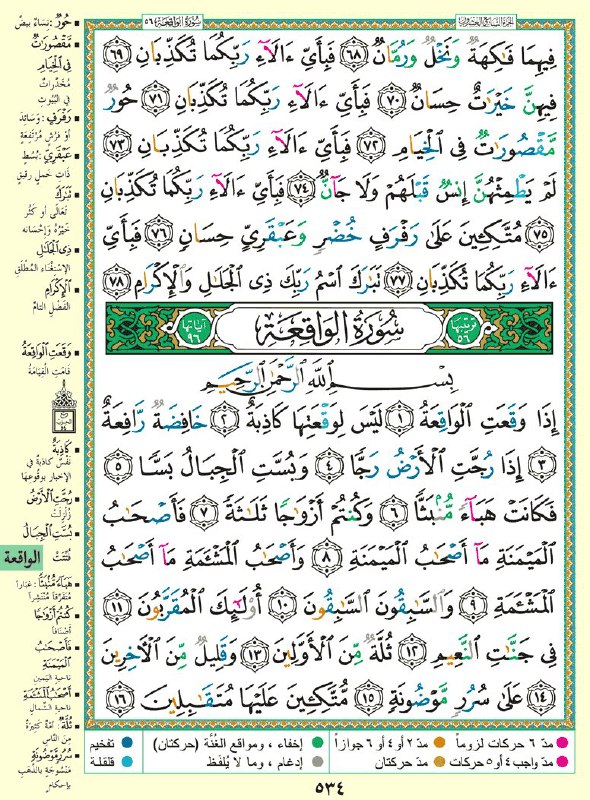 الجزء السابع والعشرون
سُورَةُ الوَاقِعَة ٥٦
فِيهِمَا فَٰكِهَةٌ وَنَخْلٌ وَرُمَّانٌ ٦٨ فَبِأَىِّ ءَالَآءِ رَبِّكُمَا تُكَذِّبَانِ ٦٩
فِيهِنَّ خَيْرَٰتٌ حِسَانٌ ٧٠ فَبِأَىِّ ءَالَآءِ رَبِّكُمَا تُكَذِّبَانِ ٧١ حُورٌ
مَّقْصُورَٰتٌ فِى ٱلْخِيَامِ ٧٢ فَبِأَىِّ ءَالَآءِ رَبِّكُمَا تُكَذِّبَانِ ٧٣
لَمْ يَطْمِثْهُنَّ إِنسٌ قَبْلَهُمْ وَلَا جَآنٌّ ٧٤ فَبِأَىِّ ءَالَآءِ رَبِّكُمَا تُكَذِّبَانِ
٧٥ مُتَّكِـِٔينَ عَلَىٰ رَفْرَفٍ خُضْرٍ وَعَبْقَرِىٍّ حِسَانٍ ٧٦ فَبِأَىِّ
ءَالَآءِ رَبِّكُمَا تُكَذِّبَانِ ٧٧ تَبَٰرَكَ ٱسْمُ رَبِّكَ ذِى ٱلْجَلَٰلِ وَٱلْإِكْرَامِ ٧٨
ترتيبها ٥٦
سُورَةُ الوَاقِعَة
آياتها ٩٦
بِسْمِ ٱللَّهِ ٱلرَّحْمَٰنِ ٱلرَّحِيمِ
إِذَا وَقَعَتِ ٱلْوَاقِعَةُ ١ لَيْسَ لِوَقْعَتِهَا كَاذِبَةٌ ٢ خَافِضَةٌ رَّافِعَةٌ
٣ إِذَا رُجَّتِ ٱلْأَرْضُ رَجًّا ٤ وَبُسَّتِ ٱلْجِبَالُ بَسًّا ٥
فَكَانَتْ هَبَآءً مُّنۢبَثًّا ٦ وَكُنتُمْ أَزْوَٰجًا ثَلَٰثَةً ٧ فَأَصْحَٰبُ
ٱلْمَيْمَنَةِ مَآ أَصْحَٰبُ ٱلْمَيْمَنَةِ ٨ وَأَصْحَٰبُ ٱلْمَشْـَٔمَةِ مَآ أَصْحَٰبُ
ٱلْمَشْـَٔمَةِ ٩ وَٱلسَّٰبِقُونَ ٱلسَّٰبِقُونَ ١٠ أُو۟لَٰٓئِكَ ٱلْمُقَرَّبُونَ ١١
فِى جَنَّٰتِ ٱلنَّعِيمِ ١٢ ثُلَّةٌ مِّنَ ٱلْأَوَّلِينَ ١٣ وَقَلِيلٌ مِّنَ ٱلْءَاخِرِينَ
١٤ عَلَىٰ سُرُرٍ مَّوْضُونَةٍ ١٥ مُّتَّكِـِٔينَ عَلَيْهَا مُتَقَٰبِلِينَ ١٦
حُورٌ : نِسَاءٌ بِيضٌ
مَّقْصُورَٰتٌ
فِى ٱلْخِيَامِ
مُخَدَّرَاتٌ
فِي البُيُوتِ
رَفْرَفٍ : وَسَائِدَ
أَوْ فُرُشٍ مُرْتَفِعَةٍ
عَبْقَرِىٍّ : بُسُطٍ
ذَاتِ خَمْلٍ رَقِيقٍ
تَبَٰرَكَ
تَعَالَى أَوْ كَثُرَ
خَيْرُهُ وَإِحْسَانُه
ذِى ٱلْجَلَٰلِ
الاسْتِغْنَاءِ المُطْلَقِ
ٱلْإِكْرَامِ
الفَضْلِ التَّامِّ
وَقَعَتِ ٱلْوَاقِعَةُ
قَامَتِ القِيَامَةُ
كَاذِبَةٌ
نَفْسٌ كَاذِبَةٌ فِي
الإخبارِ بوقوعها
رُجَّتِ ٱلْأَرْضُ
زُلْزِلَتْ
بُسَّتِ ٱلْجِبَالُ
فُتِّتَتْ
الواقعة
هَبَآءً مُّنۢبَثًّا : غُبَاراً
مُتَفَرِّقاً مُنْتَشِراً
كُنتُمْ أَزْوَٰجًا
أَصْنَافاً
فَأَصْحَٰبُ
ٱلْمَيْمَنَةِ
ناحية اليمين
أَصْحَٰبُ ٱلْمَشْـَٔمَةِ
ناحية الشِّمال
ثُلَّةٌ : أُمَّةٌ كَثِيرَةٌ
مِنَ النَّاسِ
سُرُرٍ مَّوْضُونَةٍ
مَنْسُوجَةٍ بِالذَّهَبِ
بإحكام
مدّ ٦ حركات لزوماً
مدّ ٢ أو ٤ أو ٦ جوازاً
إخفاء ، ومواقع الغُنَّة (حركتان)
تفخيم
مدّ واجب ٤ أو ٥ حركات
مدّ حركتان
إدغام ، وما لا يُلفَظ
قلقلة
٥٣٤